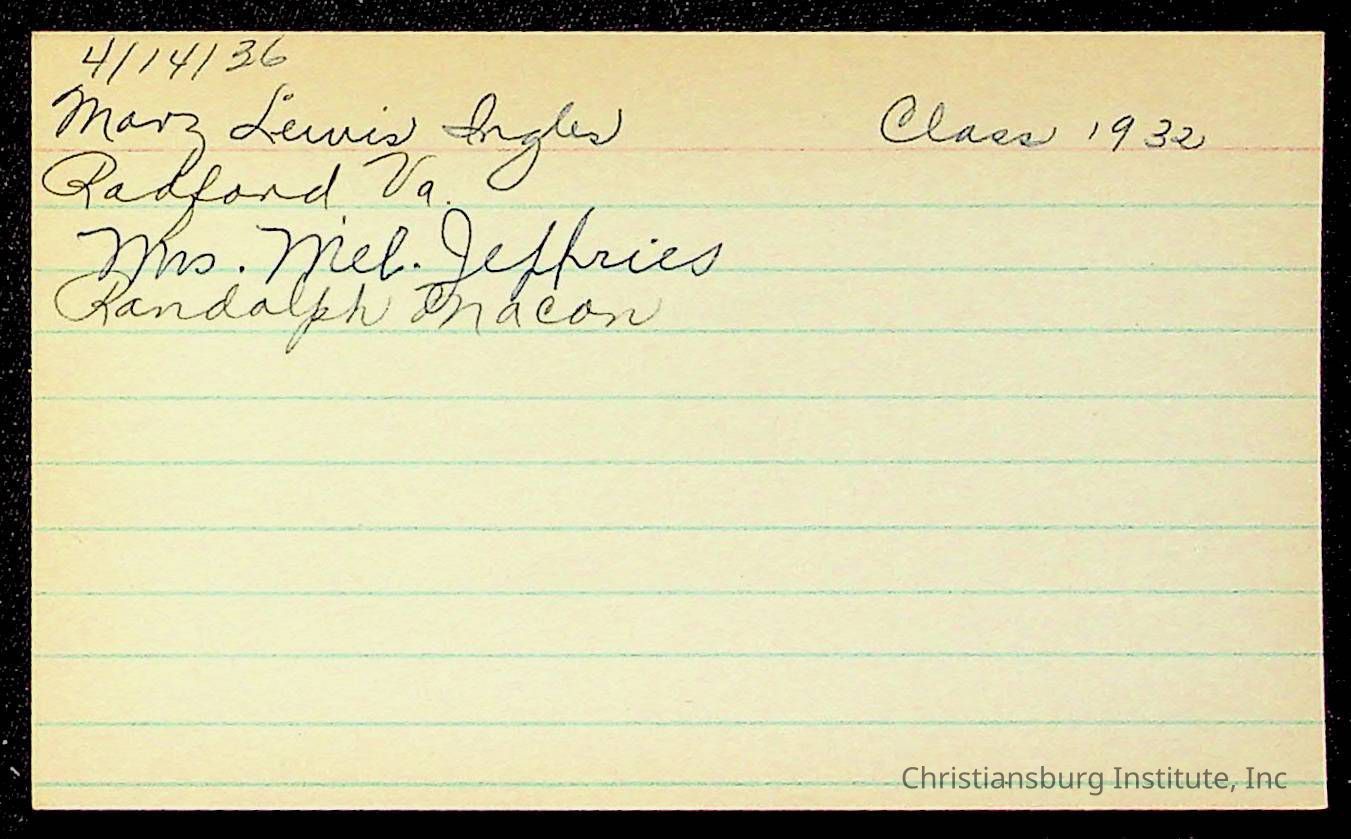 4/14/36
Mary Lewis Ingles Class 1932
Radford Va.
Mrs. Mel. Jeffries
Randolph Macon
Christiansburg Institute, Inc